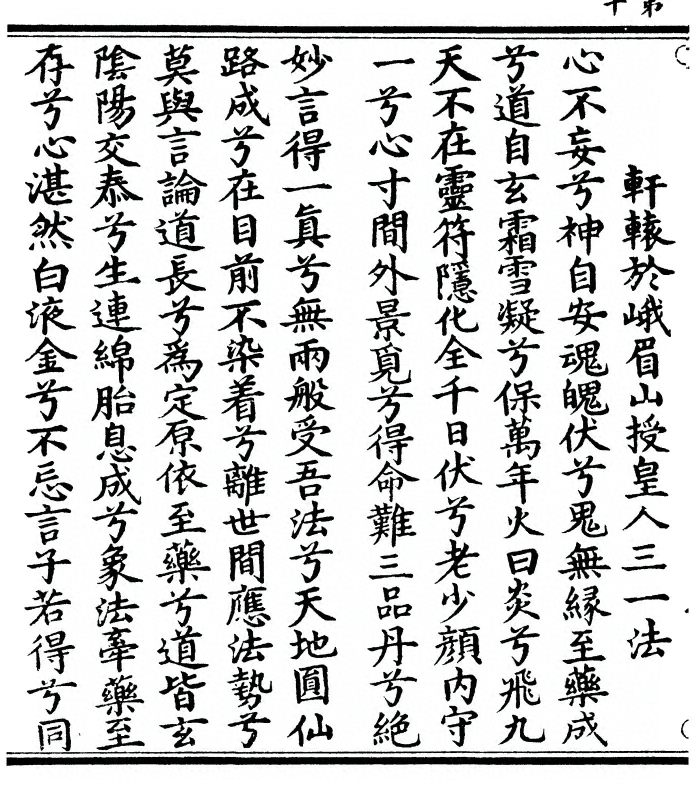 第
十
軒轅於峨眉山授皇人三一法
心不妄兮神自安魂魄伏兮鬼無緣至藥成
兮道自玄霜雪凝兮保萬年火曰炎兮飛九
天不在靈符隱化全千日伏兮老少顏內守
一兮心寸間外景覓兮得命難三品丹兮絕
妙言得一眞兮無兩般受吾法兮天地圓仙
路成兮在目前不染着兮離世間應法勢兮
莫與言論道長兮爲定原依至藥兮道皆玄
陰陽交泰兮生連綿胎息成兮象法牽藥至
存兮心湛然白液金兮不忘言子若得兮同